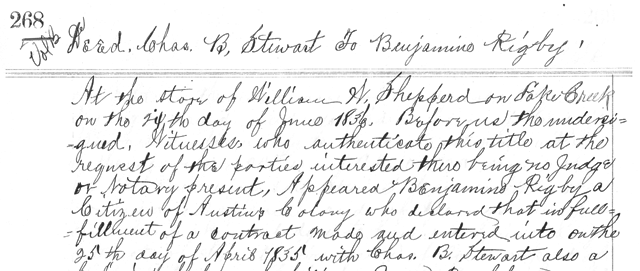 268
Vol B
Deed. Chas. B. Stewart To Benjamine Rigby.
At the store of William W. Shepperd on Lake Creek
on the 24th day of June 1836. Before us the undersi=
=gned, Witnesses, who authenticate this title at the
request of the parties interested there being no Judge
or Notary present, Appeared Benjamine Rigby a
Citizen of Austins Colony who declared that in full=
=fillment of a contract made and entered into on the
25th day of April 1835 with Chas. B. Stewart also a